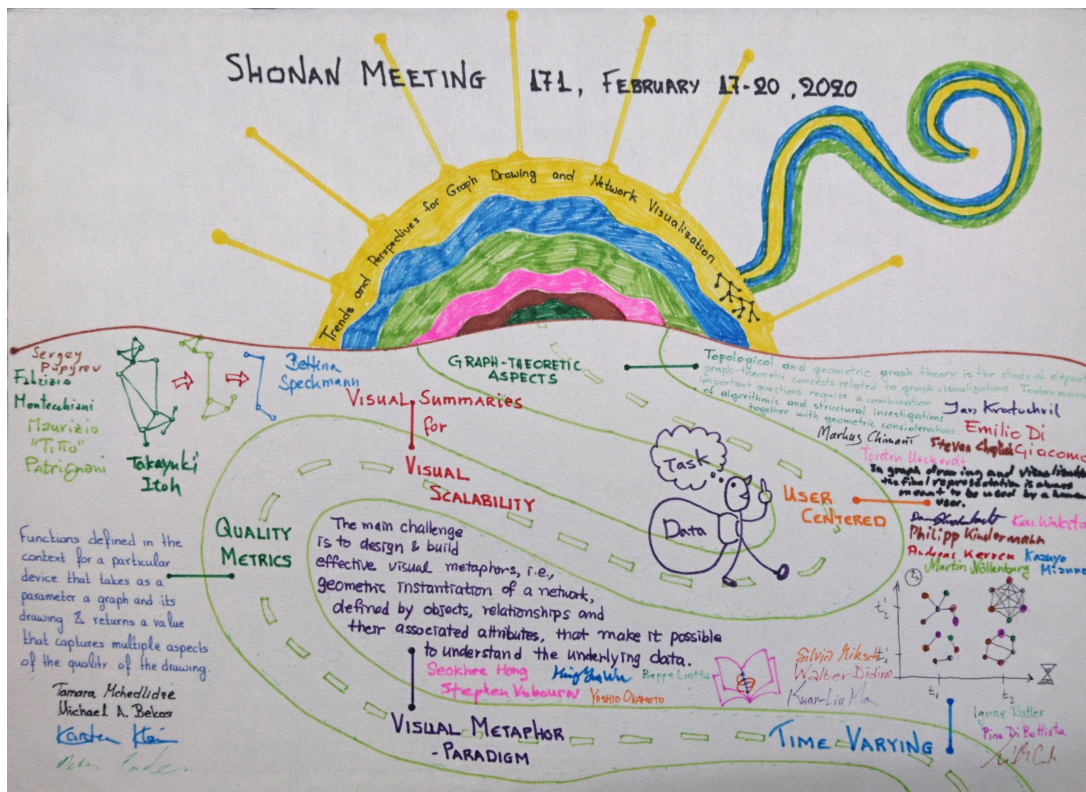 SHONAN MEETING 171, FEBRUARY 17-20, 2020
Trends and Perspectives for Graph Drawing and Network Visualization
Sergey
Pupyrev
Fabrizio
Montecchiani
Maurizio
"Titto"
Patrignani
Takayuki
Itoh
Bettina
Speckmann
GRAPH-THEORETIC
ASPECTS
Topological and geometric graph theory is the study of
graph-theoretic concepts related to graph visualizations. Today more
important questions require a combination
of algorithmic and structural investigations
together with geometric considerations.
Jan Kratochvil
Emilio Di
Giacomo
Markus Chimani
Steven
Torsten Ueckerdt
VISUAL SUMMARIES
for
VISUAL
SCALABILITY
Task
Data
USER
CENTERED
In graph drawing and visualization
the final representation is always
meant to be used by a human
user.
Kai
Philipp Kindermann
Andreas Kerren
Kazuyo
Mizuno
Martin Nöllenburg
QUALITY
METRICS
Functions defined in the
context for a particular
device that takes as a
parameter a graph and its
drawing & returns a value
that captures multiple aspects
of the quality of the drawing.
Tamara Mchedlidze
Michael A. Bekos
Karsten Klein
The main challenge
is to design & build
effective visual metaphors, i.e.,
geometric instantiation of a network,
defined by objects, relationships and
their associated attributes, that make it possible
to understand the underlying data.
Seokhee Hong
Hsiang-Yun Wu
Beppe Liotta
Stephen Kobourov
YOSHIO OKAMOTO
VISUAL METAPHOR
- PARADIGM
Silvia Miksch
Walter Didimo
Kwan-Liu Ma
3
t₁
t₂
TIME VARYING
Ignaz Rutter
Pino Di Battista